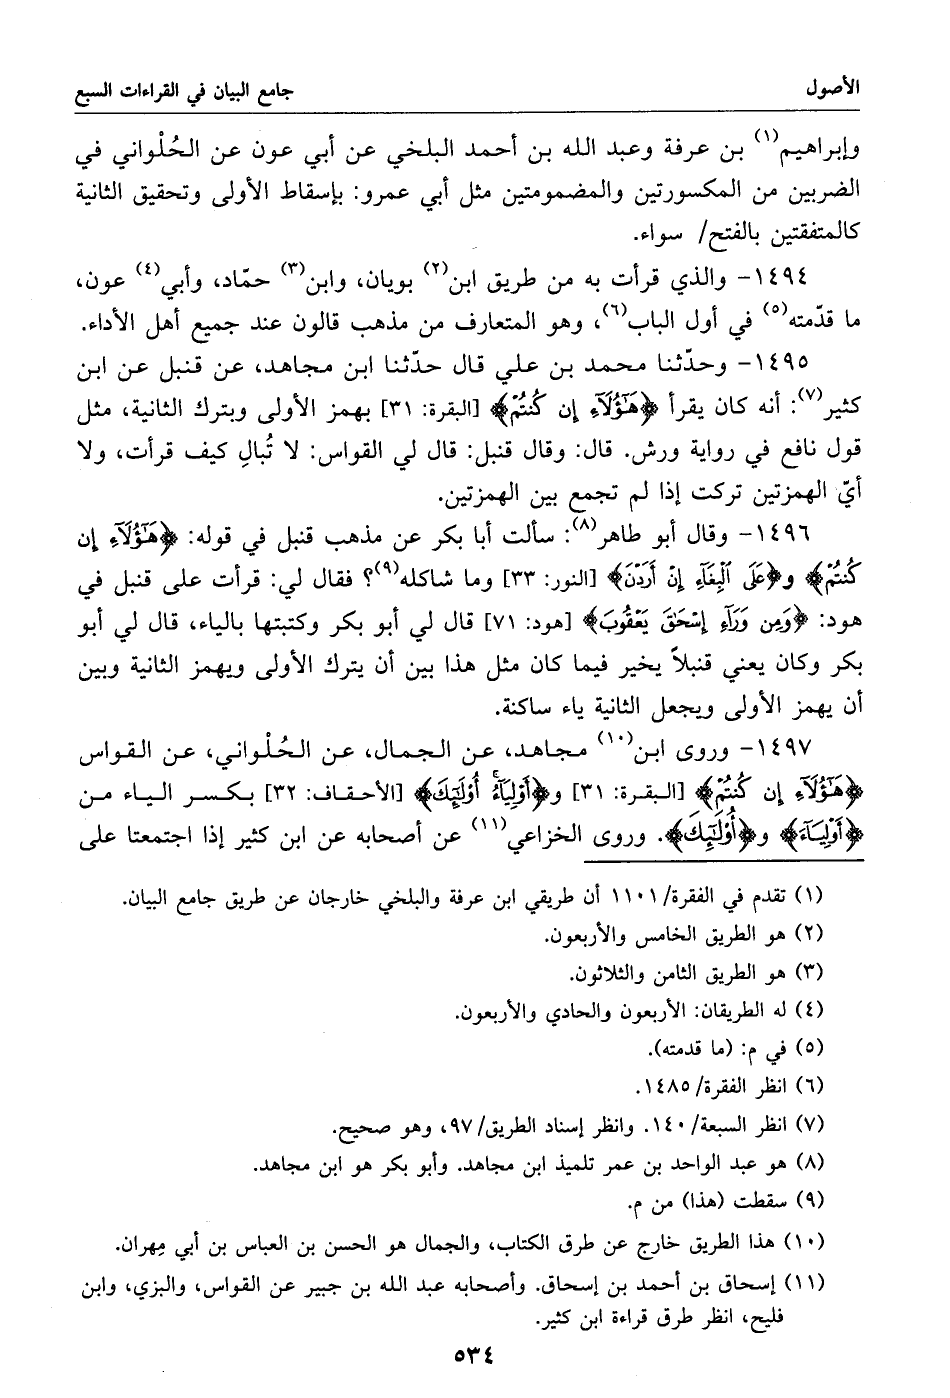 الأصول
جامع البيان في القراءات السبع
وإبراهيم(١) بن عرفة وعبد الله بن أحمد البلخي عن أبي عون عن الحُلْواني في
الضربين من المكسورتين والمضمومتين مثل أبي عمرو: بإسقاط الأولى وتحقيق الثانية
كالمتفقتين بالفتح/ سواء.
١٤٩٤- والذي قرأت به من طريق ابن(٢) بويان، وابن(٣) حمّاد، وأبي(٤) عون،
ما قدّمته(٥) في أول الباب(٦)، وهو المتعارف من مذهب قالون عند جميع أهل الأداء.
١٤٩٥- وحدّثنا محمد بن علي قال حدّثنا ابن مجاهد، عن قنبل عن ابن
كثير(٧): أنه كان يقرأ ﴿هَٰٓؤُلَآءِ إِن كُنتُمْ﴾ [البقرة: ٣١] بهمز الأولى وبترك الثانية، مثل
قول نافع في رواية ورش. قال: وقال قنبل: قال لي القواس: لا تُبالِ كيف قرأت، ولا
أيّ الهمزتين تركت إذا لم تجمع بين الهمزتين.
١٤٩٦- وقال أبو طاهر(٨): سألت أبا بكر عن مذهب قنبل في قوله: ﴿هَٰٓؤُلَآءِ إِن
كُنتُمْ﴾ و﴿عَلَى ٱلْبِغَآءِ إِنْ أَرَدْنَ﴾ [النور: ٣٣] وما شاكله(٩)؟ فقال لي: قرأت على قنبل في
هود: ﴿وَمِن وَرَآءِ إِسْحَٰقَ يَعْقُوبَ﴾ [هود: ٧١] قال لي أبو بكر وكتبتها بالياء، قال لي أبو
بكر وكان يعني قنبلاً يخير فيما كان مثل هذا بين أن يترك الأولى ويهمز الثانية وبين
أن يهمز الأولى ويجعل الثانية ياء ساكنة.
١٤٩٧- وروى ابن(١٠) مجاهد، عن الجمال، عن الحُلْواني، عن القواس
﴿هَٰٓؤُلَآءِ إِن كُنتُمْ﴾ [البقرة: ٣١] و﴿أَوْلِيَآءُ أُو۟لَٰٓئِكَ﴾ [الأحقاف: ٣٢] بكسر الياء من
﴿أَوْلِيَآءُ﴾ و﴿أُو۟لَٰٓئِكَ﴾. وروى الخزاعي(١١) عن أصحابه عن ابن كثير إذا اجتمعتا على
(١) تقدم في الفقرة/ ١١٠١ أن طريقي ابن عرفة والبلخي خارجان عن طريق جامع البيان.
(٢) هو الطريق الخامس والأربعون.
(٣) هو الطريق الثامن والثلاثون.
(٤) له الطريقان: الأربعون والحادي والأربعون.
(٥) في م: (ما قدمته).
(٦) انظر الفقرة/ ١٤٨٥.
(٧) انظر السبعة/ ١٤٠. وانظر إسناد الطريق/ ٩٧، وهو صحيح.
(٨) هو عبد الواحد بن عمر تلميذ ابن مجاهد. وأبو بكر هو ابن مجاهد.
(٩) سقطت (هذا) من م.
(١٠) هذا الطريق خارج عن طرق الكتاب، والجمال هو الحسن بن العباس بن أبي مِهران.
(١١) إسحاق بن أحمد بن إسحاق. وأصحابه عبد الله بن جبير عن القواس، والبزي، وابن
فليح، انظر طرق قراءة ابن كثير.
٥٣٤